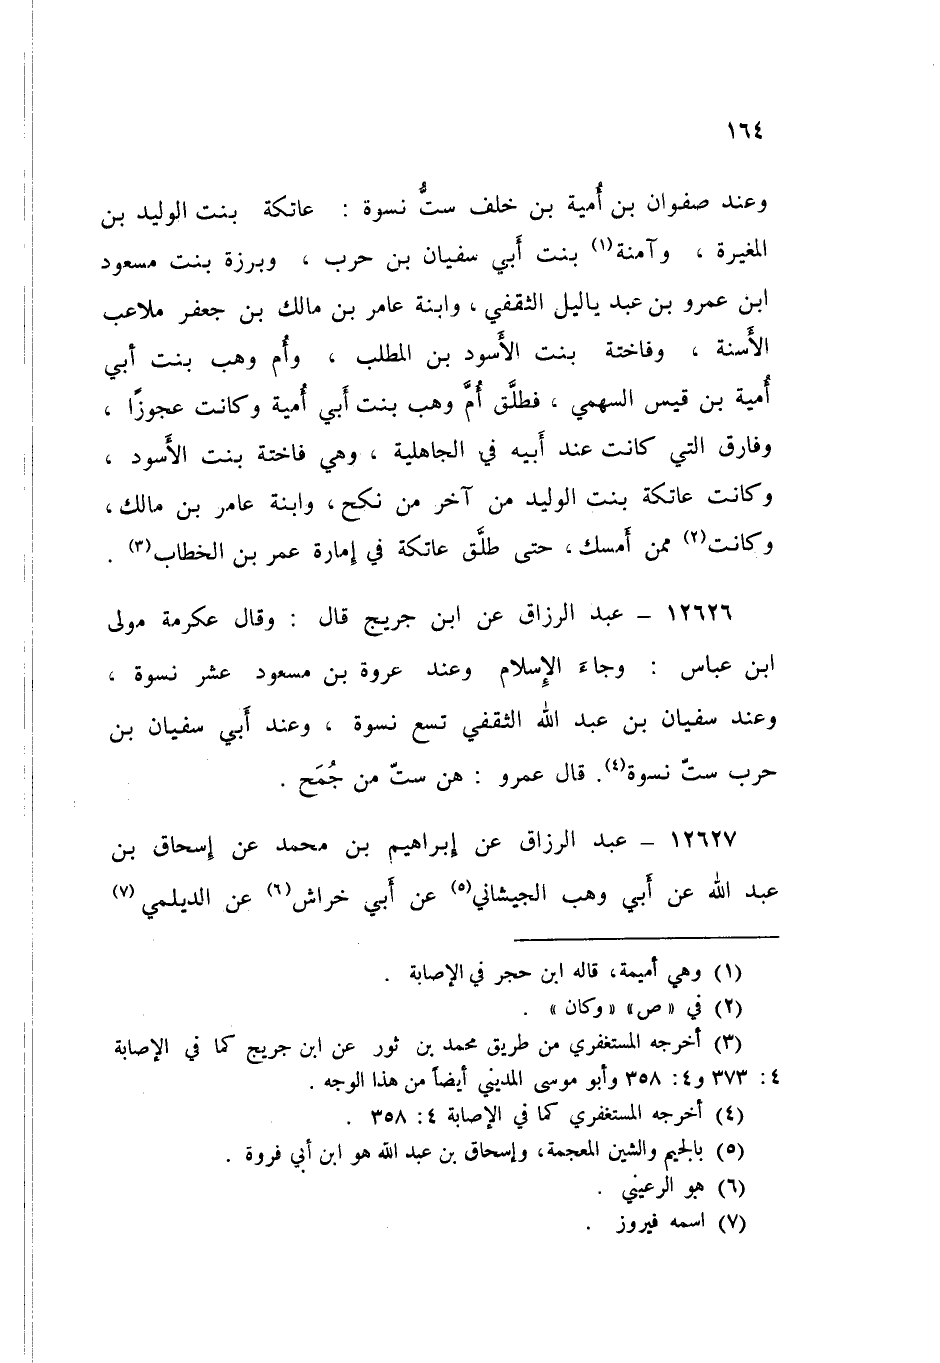 ١٦٤
وعند صفوان بن أُمية بن خلف ستُّ نسوة : عاتكة بنت الوليد بن
المغيرة ، وآمنة(١) بنت أَبي سفيان بن حرب ، وبرزة بنت مسعود
ابن عمرو بن عبد ياليل الثقفي ، وابنة عامر بن مالك بن جعفر ملاعب
الأَسنة ، وفاختة بنت الأَسود بن المطلب ، وأُم وهب بنت أبي
أُمية بن قيس السهمي ، فطلَّق أُمَّ وهب بنت أَبي أُمية وكانت عجوزًا ،
وفارق التي كانت عند أَبيه في الجاهلية ، وهي فاختة بنت الأَسود ،
وكانت عاتكة بنت الوليد من آخر من نكح ، وابنة عامر بن مالك ،
وكانت(٢) ممن أَمسك ، حتى طلَّق عاتكة في إمارة عمر بن الخطاب(٣) .
١٢٦٢٦ – عبد الرزاق عن ابن جريج قال : وقال عكرمة مولى
ابن عباس : وجاءَ الإِسلام وعند عروة بن مسعود عشر نسوة ،
وعند سفيان بن عبد الله الثقفي تسع نسوة ، وعند أَبي سفيان بن
حرب ستّ نسوة(٤). قال عمرو : هن ستّ من جُمَح .
١٢٦٢٧ – عبد الرزاق عن إبراهيم بن محمد عن إسحاق بن
عبد الله عن أَبي وهب الجيشاني(٥) عن أَبي خراش(٦) عن الديلمي(٧)
(١) وهي أميمة، قاله ابن حجر في الإصابة .
(٢) في «ص» «وكان» .
(٣) أخرجه المستغفري من طريق محمد بن ثور عن ابن جريج كما في الإصابة
٤ : ٣٧٣ و٤ : ٣٥٨ وأبو موسى المديني أيضاً من هذا الوجه .
(٤) أخرجه المستغفري كما في الإصابة ٤ : ٣٥٨ .
(٥) بالجيم والشين المعجمة، وإسحاق بن عبد الله هو ابن أبي فروة .
(٦) هو الرعيني .
(٧) اسمه فيروز .